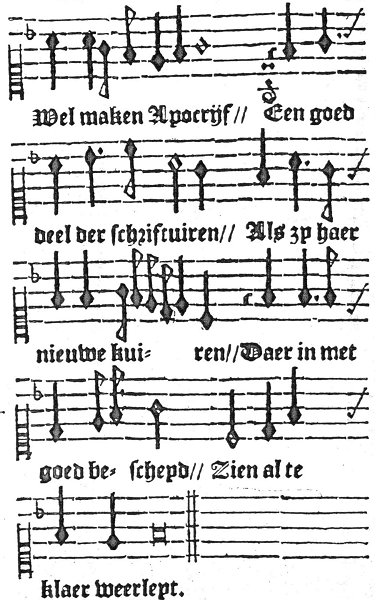 Wel maken Apocrijf // Een goed
deel der schriftuiren // Als zy haer
nieuwe kui- ren // Daer in met
goed be- schepd // Zien al te
klaer weerlept.